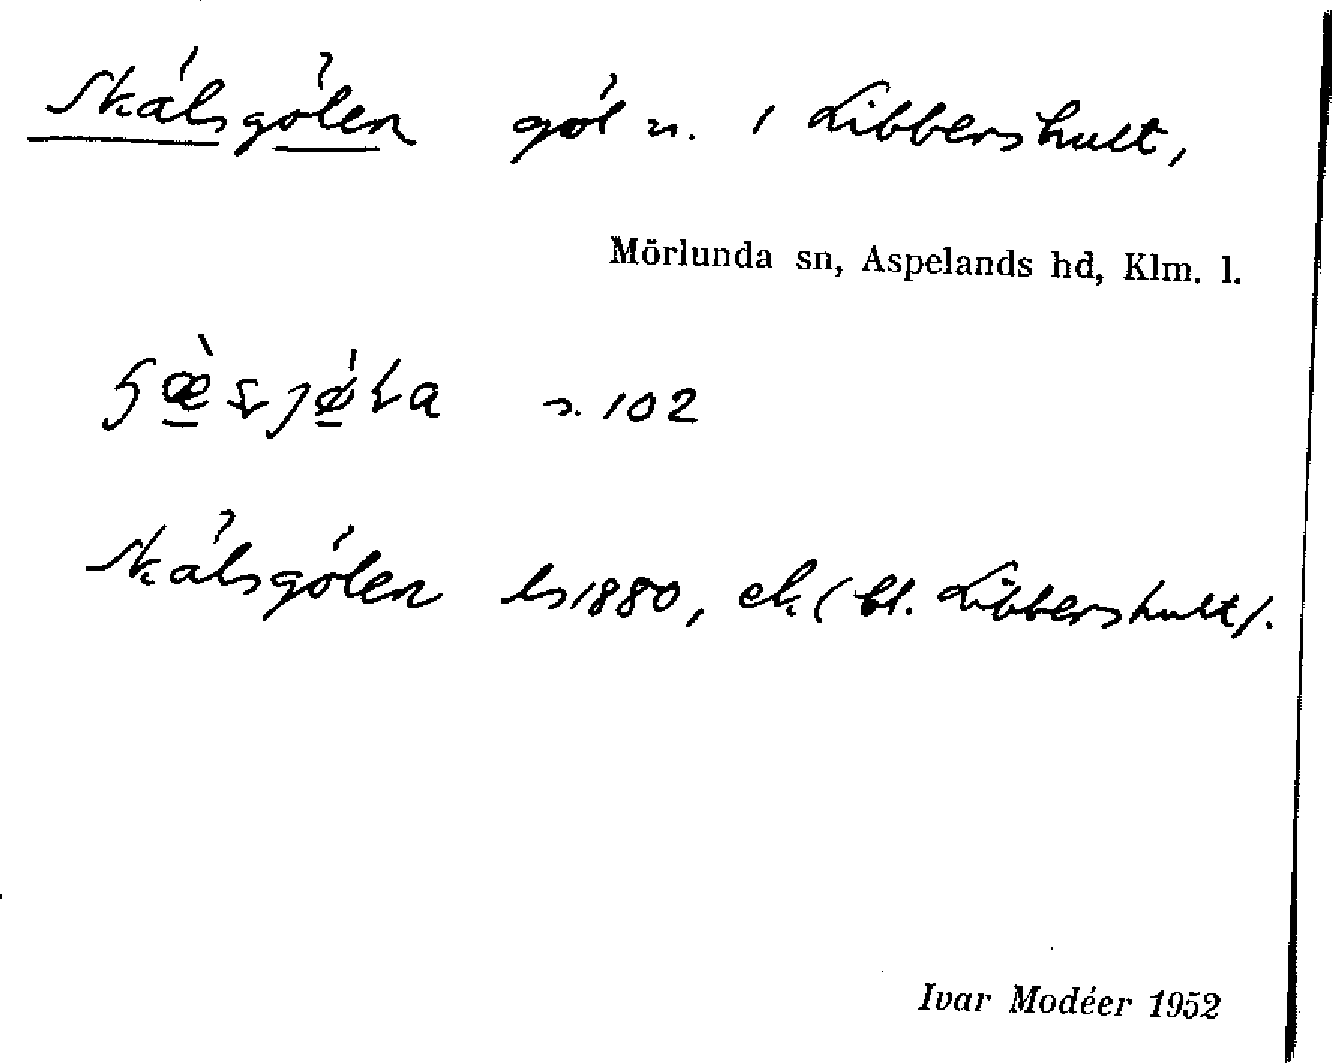 Skälsgölen göl n. i Libbershult,
Mörlunda sn, Aspelands hd, Klm. l.
s. 102
Skälsgölen ls 1880, ek (bl. Libbershult).
Ivar Modéer 1952